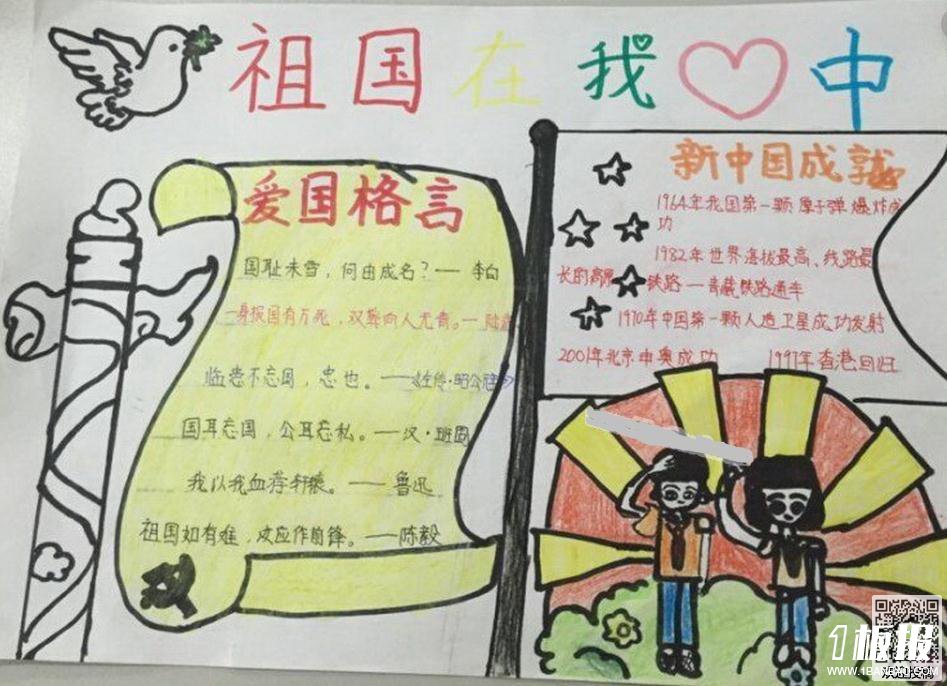 祖国在我中
爱国格言
国耻未雪，何由成名？——李白
一身报国有万死，双鬓向人无青。——陆游
临患不忘国，忠也。——《左传·昭公
国耳忘国，公耳忘私。——汉·班固
我以我血荐轩辕。——鲁迅
祖国如有难，应作前锋。——陈毅
新中国成就
1964年我国第一颗原子弹爆炸成
功
1982年世界海拔最高、线路最
长的高原铁路—青藏铁路通车
1970年中国第一颗人造卫星成功发射
2001年北京申奥成功 1997年香港回归
1板报
WWW.1BANBAO.COM